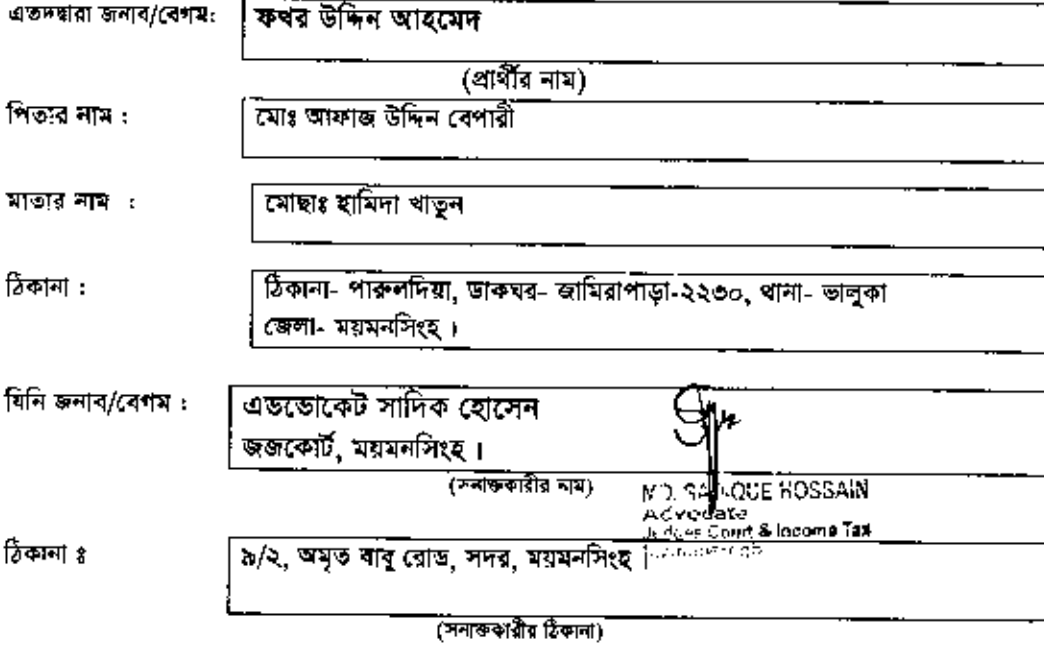 এতদদ্বারা জনাব/বেগম: ফখর উদ্দিন আহমেদ
(প্রার্থীর নাম)
পিতার নাম : মোঃ আফাজ উদ্দিন বেপারী
মাতার নাম : মোছাঃ হামিদা খাতুন
ঠিকানা : ঠিকানা- পারুলদিয়া, ডাকঘর- জামিরাপাড়া-২২৩০, থানা- ভালুকা
জেলা- ময়মনসিংহ ।
যিনি জনাব/বেগম : এডভোকেট সাদিক হোসেন
জজকোর্ট, ময়মনসিংহ ।
(সনাক্তকারীর নাম)
MD. HOSSAIN
Advocate
Judges Court & Income Tax
ঠিকানা ঃ ৯/২, অমৃত বাবু রোড, সদর, ময়মনসিংহ
(সনাক্তকারীর ঠিকানা)